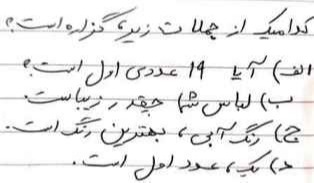 کدامیک از جملات زیر، گزاره است؟
الف) آیا 19 عددی اول است؟
ب) لباس شما چقدر زیباست.
ج) رنگ آبی، بهترین رنگ است.
د) یک، عدد اول است.